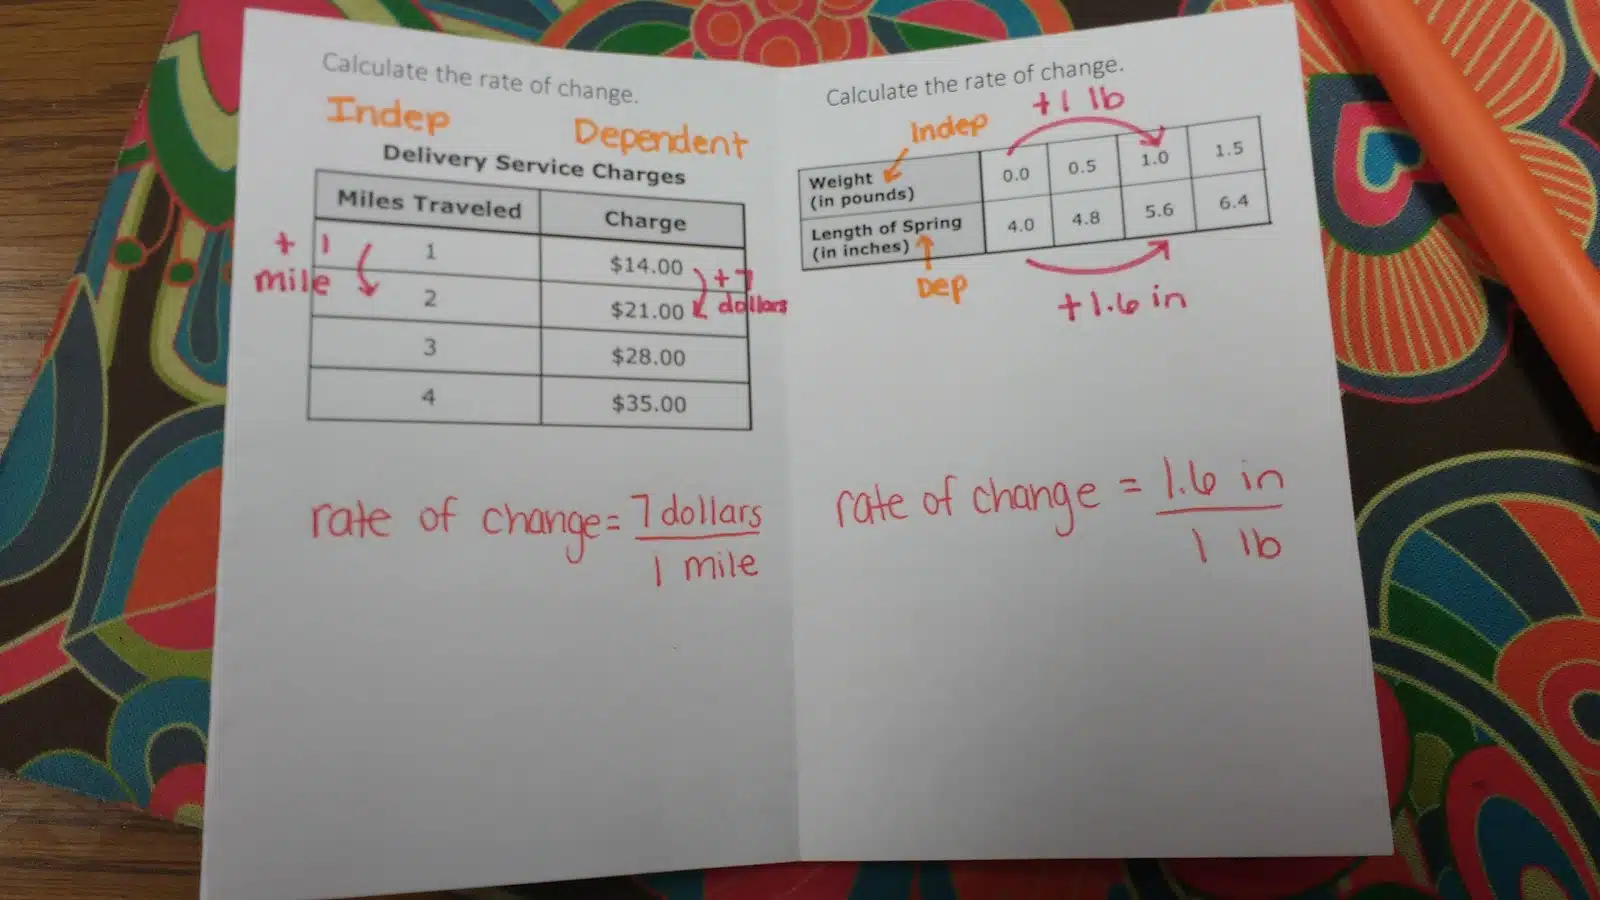 Calculate the rate of change.
Indep Dependent
Delivery Service Charges
Miles Traveled Charge
1 $14.00
+ 1 mile
+7 dollars
2 $21.00
3 $28.00
4 $35.00
rate of change = 7 dollars
1 mile
Calculate the rate of change.
+1 lb
Indep
Weight (in pounds) 0.0 0.5 1.0 1.5
Length of Spring (in inches) 4.0 4.8 5.6 6.4
Dep
+1.6 in
rate of change = 1.6 in
1 lb